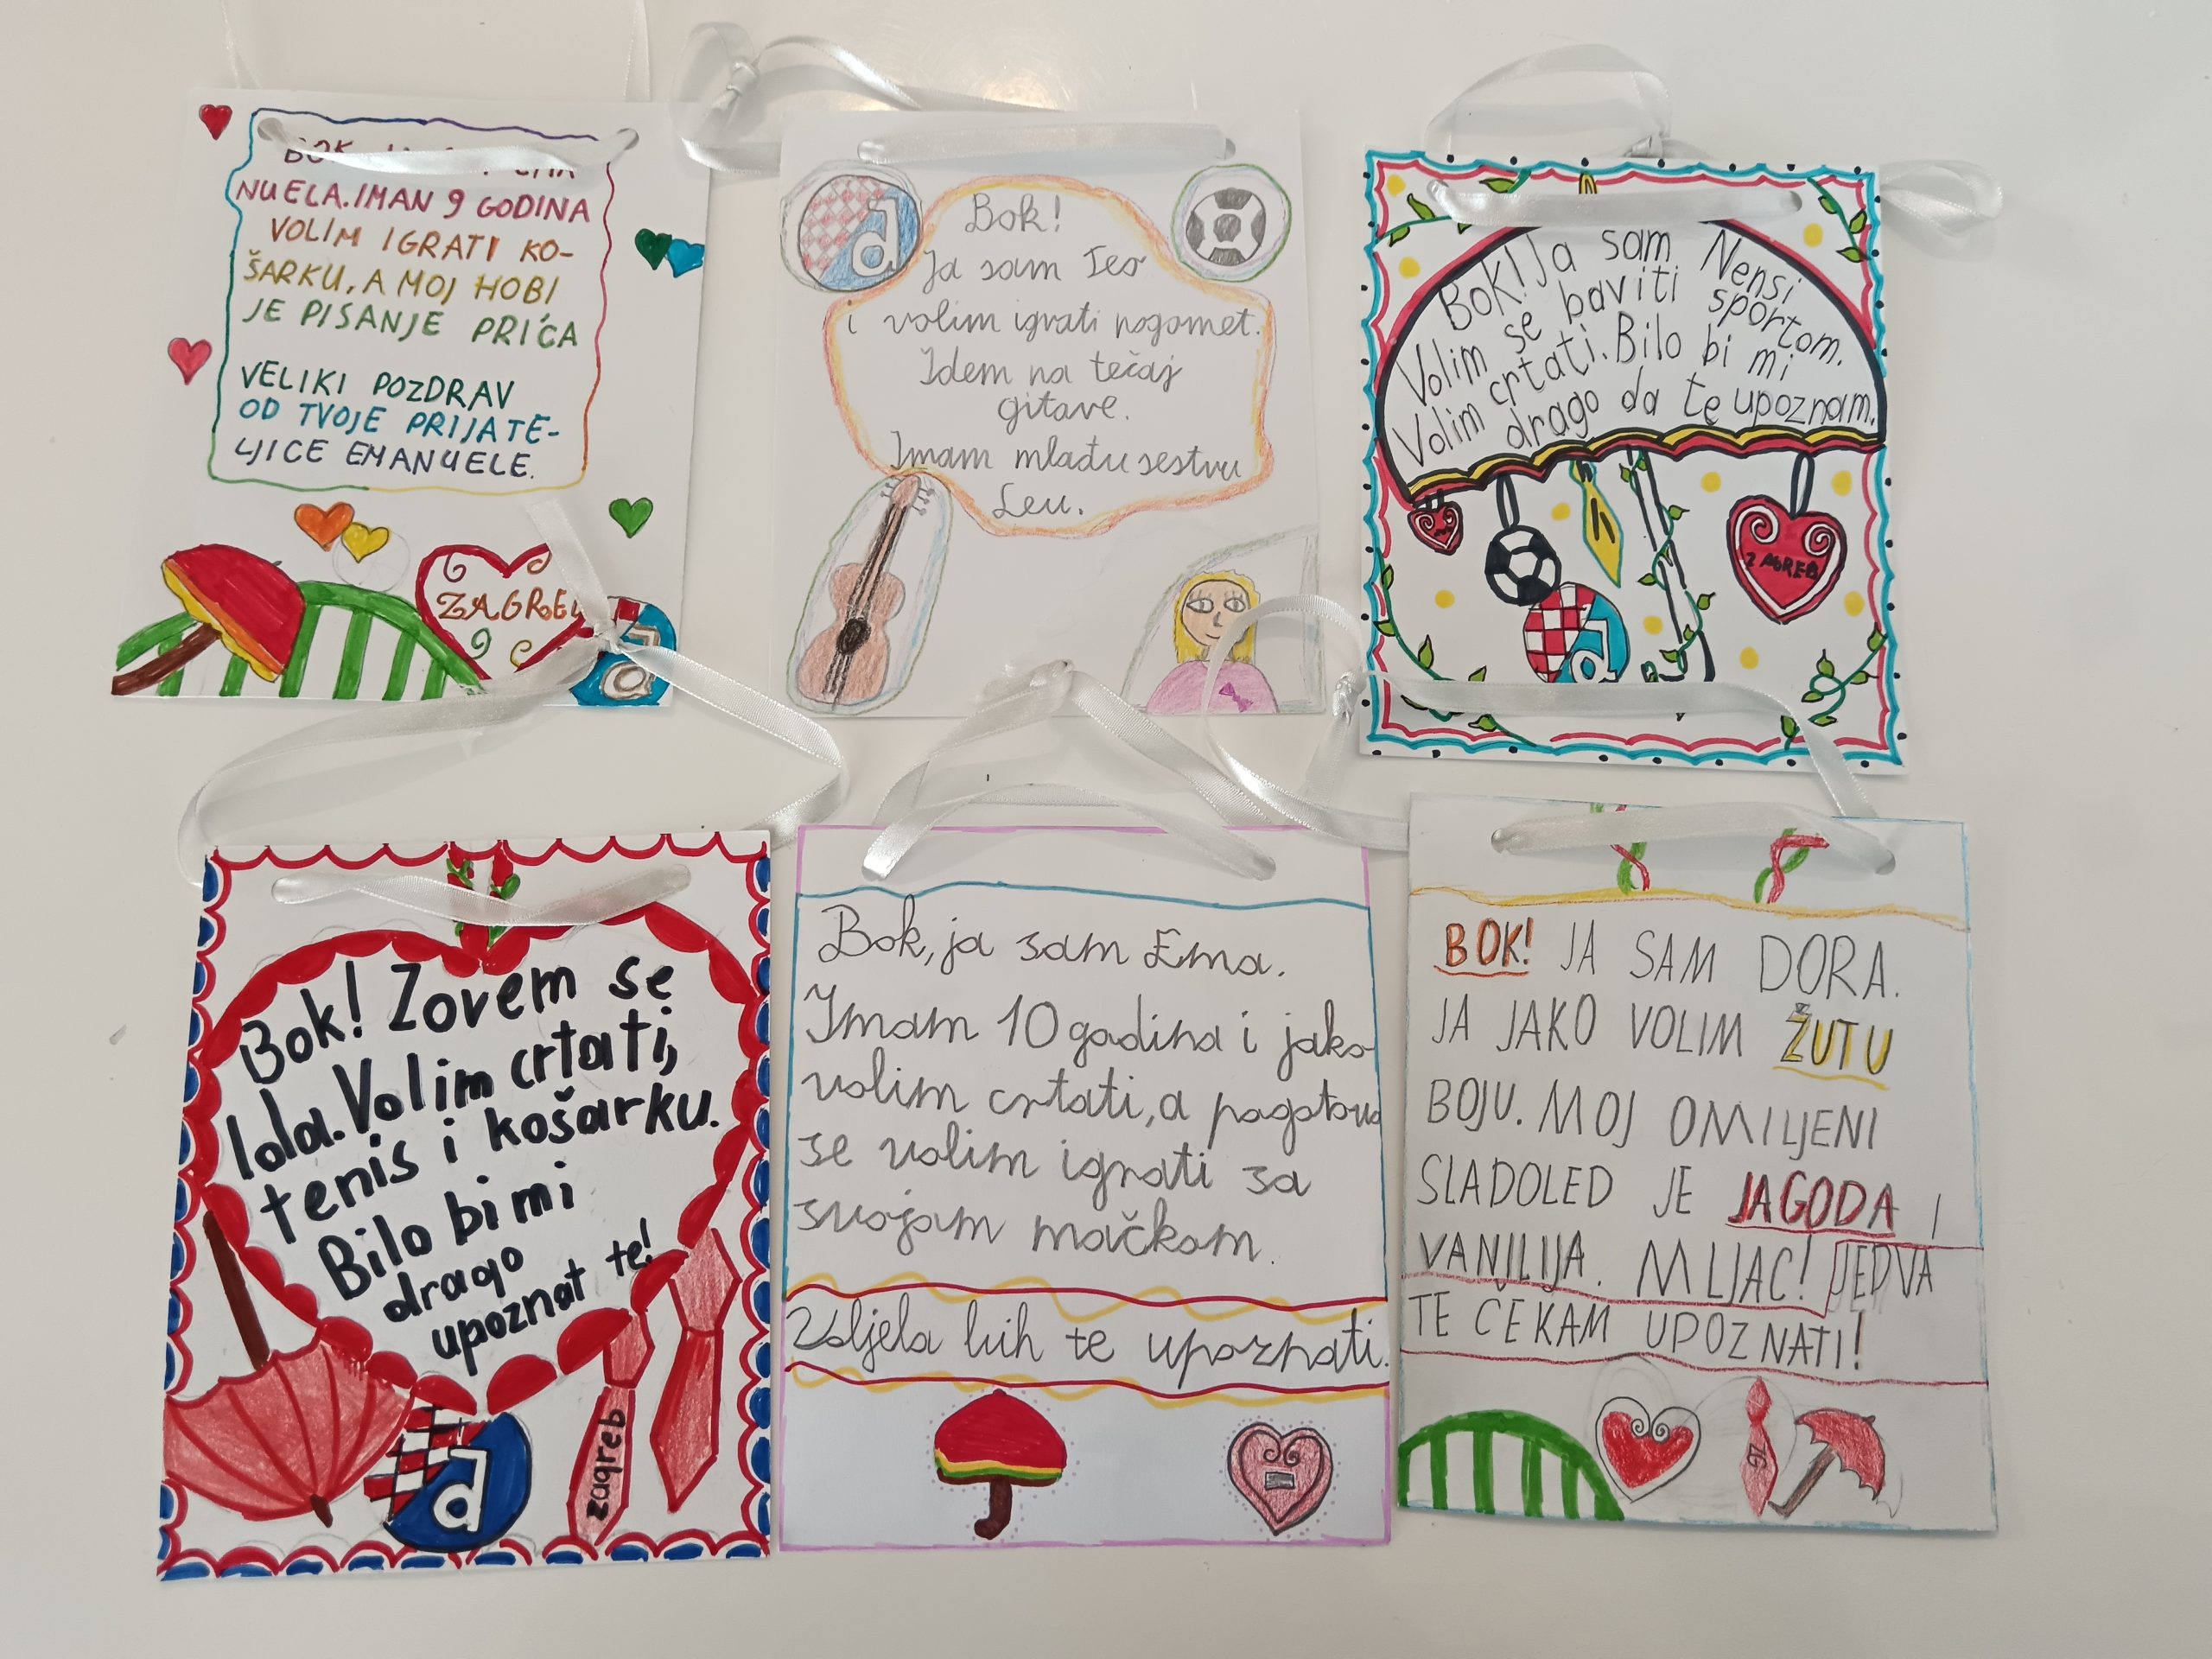 BOK
NUELA. IMAN 9 GODINA
VOLIM IGRATI KO-
ŠARKU, A MOJ HOBI
JE PISANJE PRIĆA
VELIKI POZDRAV
OD TVOJE PRIJATE-
LJICE EMANUELE.
ZAGREB
d
d
Bok!
Ja sam Teo
i volim igrati nogomet.
Idem na tečaj
gitare.
Imam mlađu sestru
Leu.
Bok! Ja sam Nensi
Volim se baviti sportom.
Volim crtati. Bilo bi mi
drago da te upoznam.
ZAGREB
d
Bok! Zovem se
lola. Volim crtati,
tenis i košarku.
Bilo bi mi
drago
upoznat te!
d
zagreb
Bok, ja sam Ema.
Imam 10 godina i jako
volim crtati, a pogotovo
se volim igrati sa
svojom mačkom.
Voljela bih te upoznati.
BOK! JA SAM DORA.
JA JAKO VOLIM ŽUTU
BOJU. MOJ OMILJENI
SLADOLED JE JAGODA I
VANILIJA. MLJAC! JEDVA
TE CEKAM UPOZNATI!
ZG